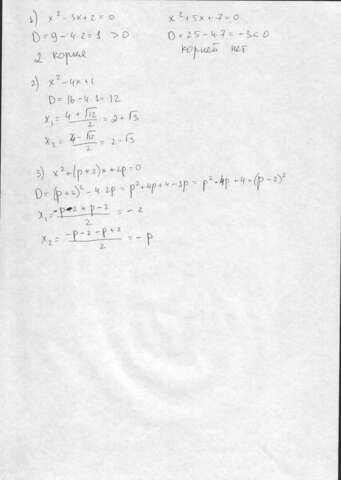 1) x²-3x+2=0
D=9-4·2=1 >0
2 корня
x²+5x+7=0
D=25-4·7=-3<0
корней нет
2) x²-4x+1
D=16-4·1=12
x₁=(4+√12)/2=2+√3
x₂=(4-√12)/2=2-√3
3) x²+(p+2)x+2p=0
D=(p+2)²-4·2p=p²+4p+4-8p=p²-4p+4=(p-2)²
x₁=(-p-2+p-2)/2=-2
x₂=(-p-2-p+2)/2=-p